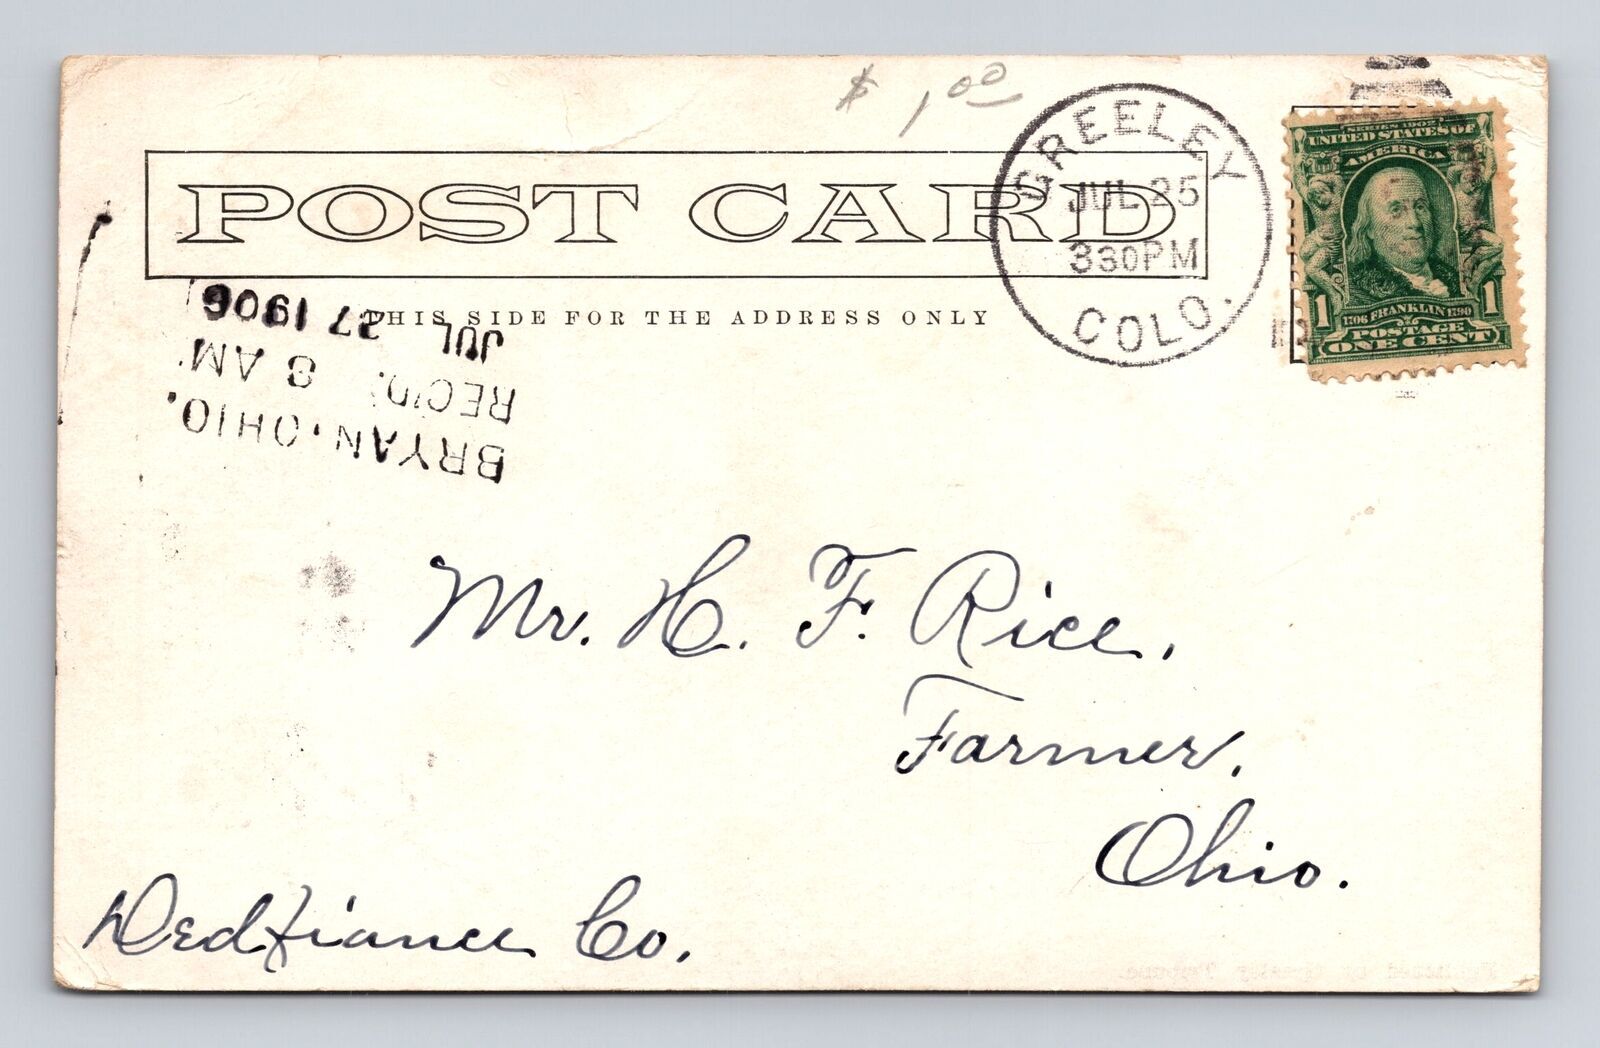 $ 1.00
POST CARD
THIS SIDE FOR THE ADDRESS ONLY
GREELEY
JUL 25
330PM
COLO.
SERIES 1902
UNITED STATES OF
AMERICA
1706 FRANKLIN 1790
1 1
POSTAGE
ONE CENT
BRYAN, OHIO.
REC'D.
8 AM
JUL 27 1906
Mr. H. F. Rice,
Farmer,
Ohio.
Dedfiance Co.
Printed by Greeley Tribune.